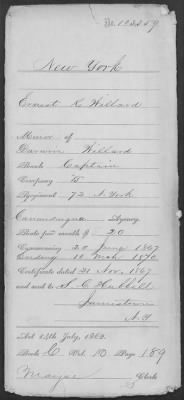 New York
Ernest K. Willard
Minor of
Darwin Willard
Rank Captain
Company B
Regiment 72 N. York
Canandaigua Agency
Rate per month $ 20
Commencing 20 June 1867
Ending 10 Mch 1870
Certificate dated 21 Nov. 1867
and sent to S. C. Hubbell
Jamestown
N.Y
Act 14th July, 1862.
Book C Vol. 10 Page 189
Clerk